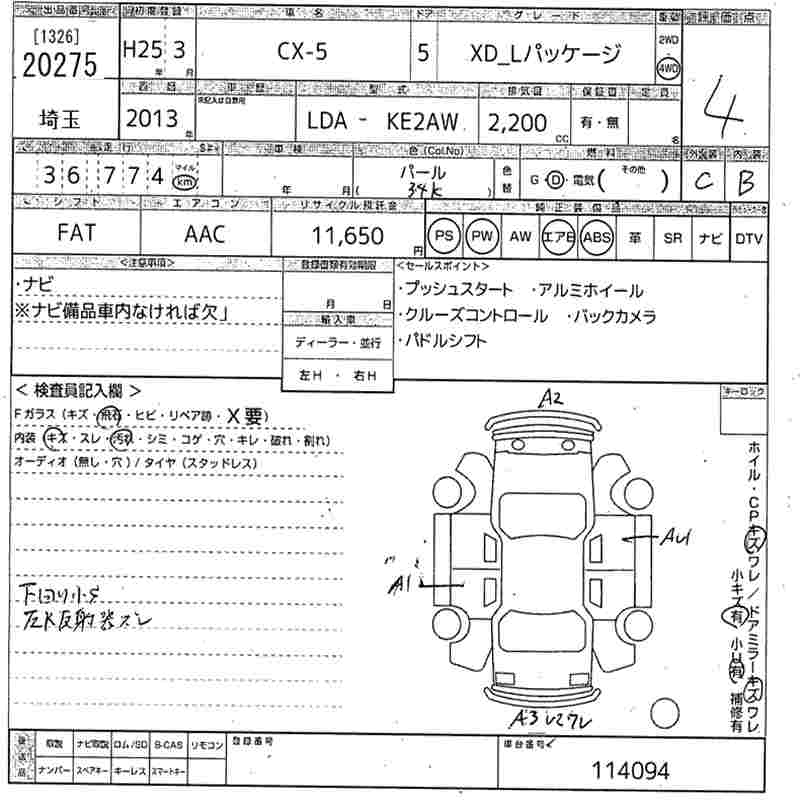 出品番号 初度登録 車名 ドア グレード 車歴 評価点
[1326] 20275 H25年 3月 CX-5 5 XD_Lパッケージ 2WD 4WD 4
埼玉 西暦 2013年 車歴 未記入は自家用 型式 LDA - KE2AW 排気量 2,200cc 保証書 有・無 定員 名
走行 車検 色(Col.No) 燃料 外装 内装
36,774 マイル km 年 月 パール (34K) 色替 G・D・電気( その他 ) C B
シフト エアコン リサイクル預託金 純正装備品
FAT AAC 11,650円 PS PW AW エアB ABS 革 SR ナビ DTV
<注意事項> 登録書類有効期限 <セールスポイント>
・ナビ 月 日 ・プッシュスタート ・アルミホイール
※ナビ備品車内なければ欠」 輸入車 ・クルーズコントロール ・バックカメラ
ディーラー・並行 ・パドルシフト
左H ・ 右H
< 検査員記入欄 > キーロック
Fガラス (キズ・飛石・ヒビ・リペア跡・X要)
内装 (キズ・スレ・汚れ・シミ・コゲ・穴・キレ・破れ・割れ)
オーディオ (無し・穴) / タイヤ (スタッドレス)
A2
A4
A1
下回り小S
左R反射器ズレ
A3
ホイル・CPキズワレ / ドアミラーキズワレ
小キズ有 小U有 補修有
後送品 取説 ナビ取説 ロム/SD B-CAS リモコン 登録番号 車台番号
ナンバー スペアキー キーレス スマートキー 114094